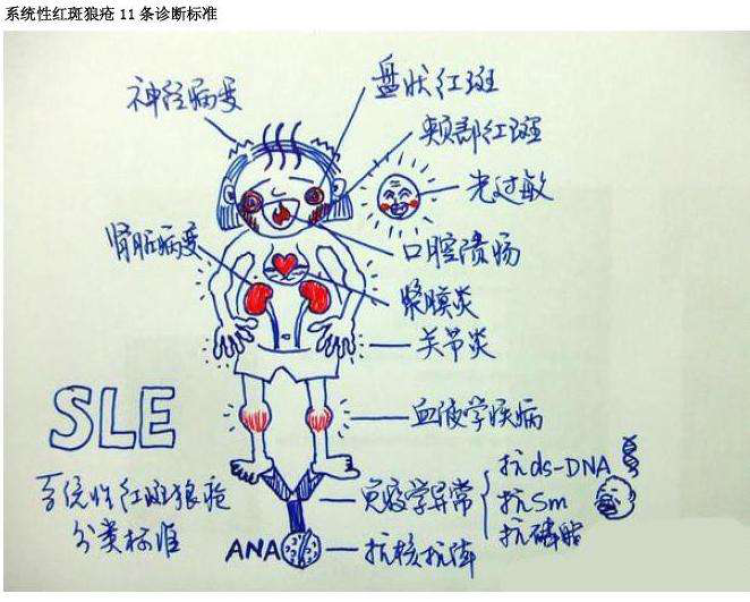 系统性红斑狼疮 11 条诊断标准
神经病变
盘状红斑
颊部红斑
光过敏
肾脏病变
口腔溃疡
浆膜炎
关节炎
SLE
血液学疾病
系统性红斑狼疮
分类标准
免疫学异常
抗ds-DNA
抗Sm
抗磷脂
ANA
抗核抗体